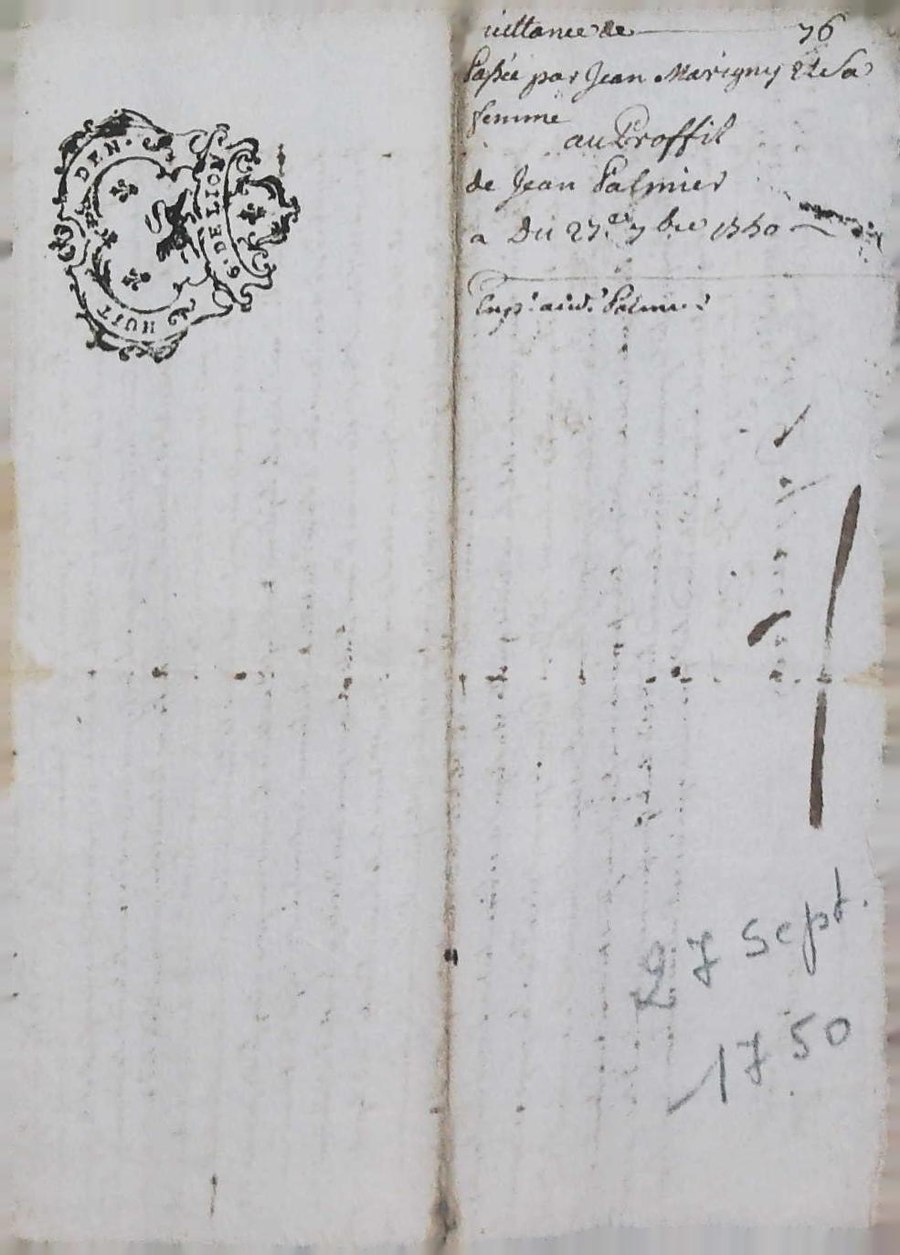 HUIT DEN.
G. DE LION
uittance de 76
Passée par Jean Marigny et Sa
femme
au Proffit
de Jean Palmier
Du 27e 7bre 1750
Palmier
27 Sept.
1750